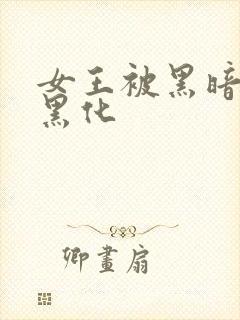 女王被黑暗
黑化
卿畫扇